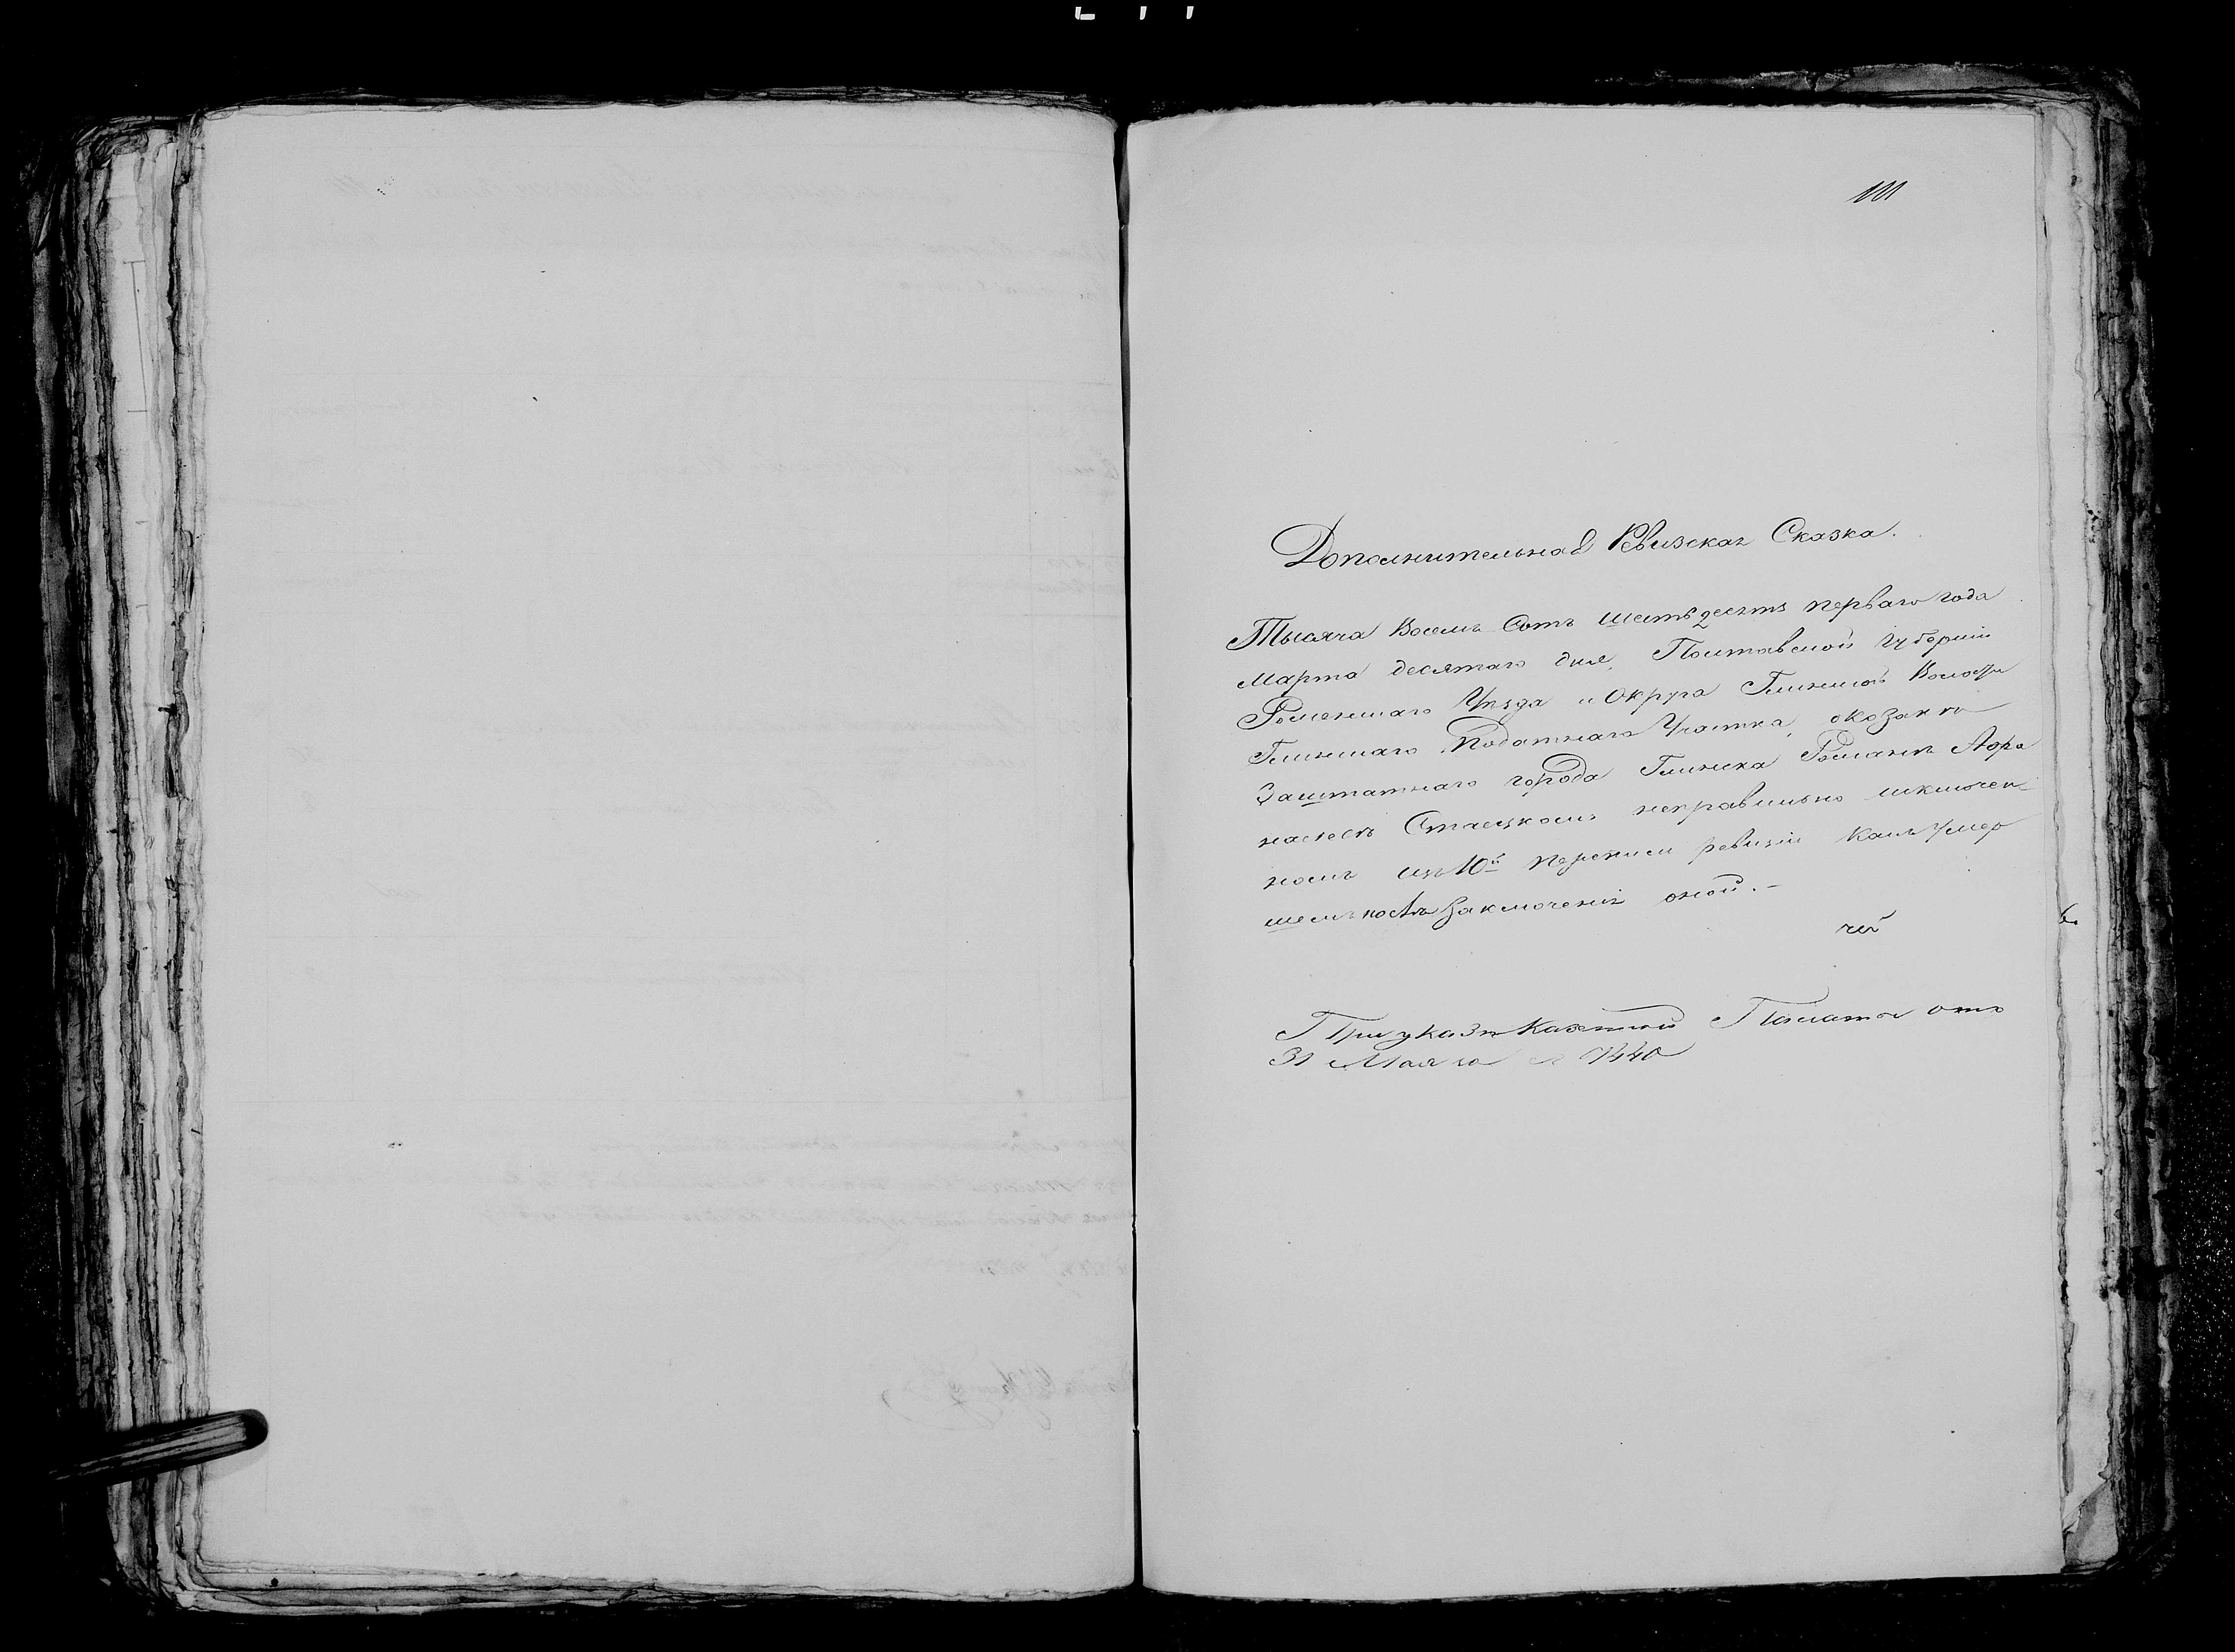 101
Дополнительная Ревизская Сказка.
Тысяча Восемь Сотъ шестьдесятъ перваго года
Марта десятаго дня, Полтавской Губернiи
Роменскаго Уѣзда и Округа Глинской Волости
Глинскаго Податнаго Участка, о козакѣ
Заштатнаго города Глинска Романѣ Афа
насьевѣ неправильно исключен-
номъ изъ 10й переписи ревизiи какъ умер
шемъ послѣ заключенiя оной.-
При указѣ Казенной Палаты отъ
31 Мая за № 7440